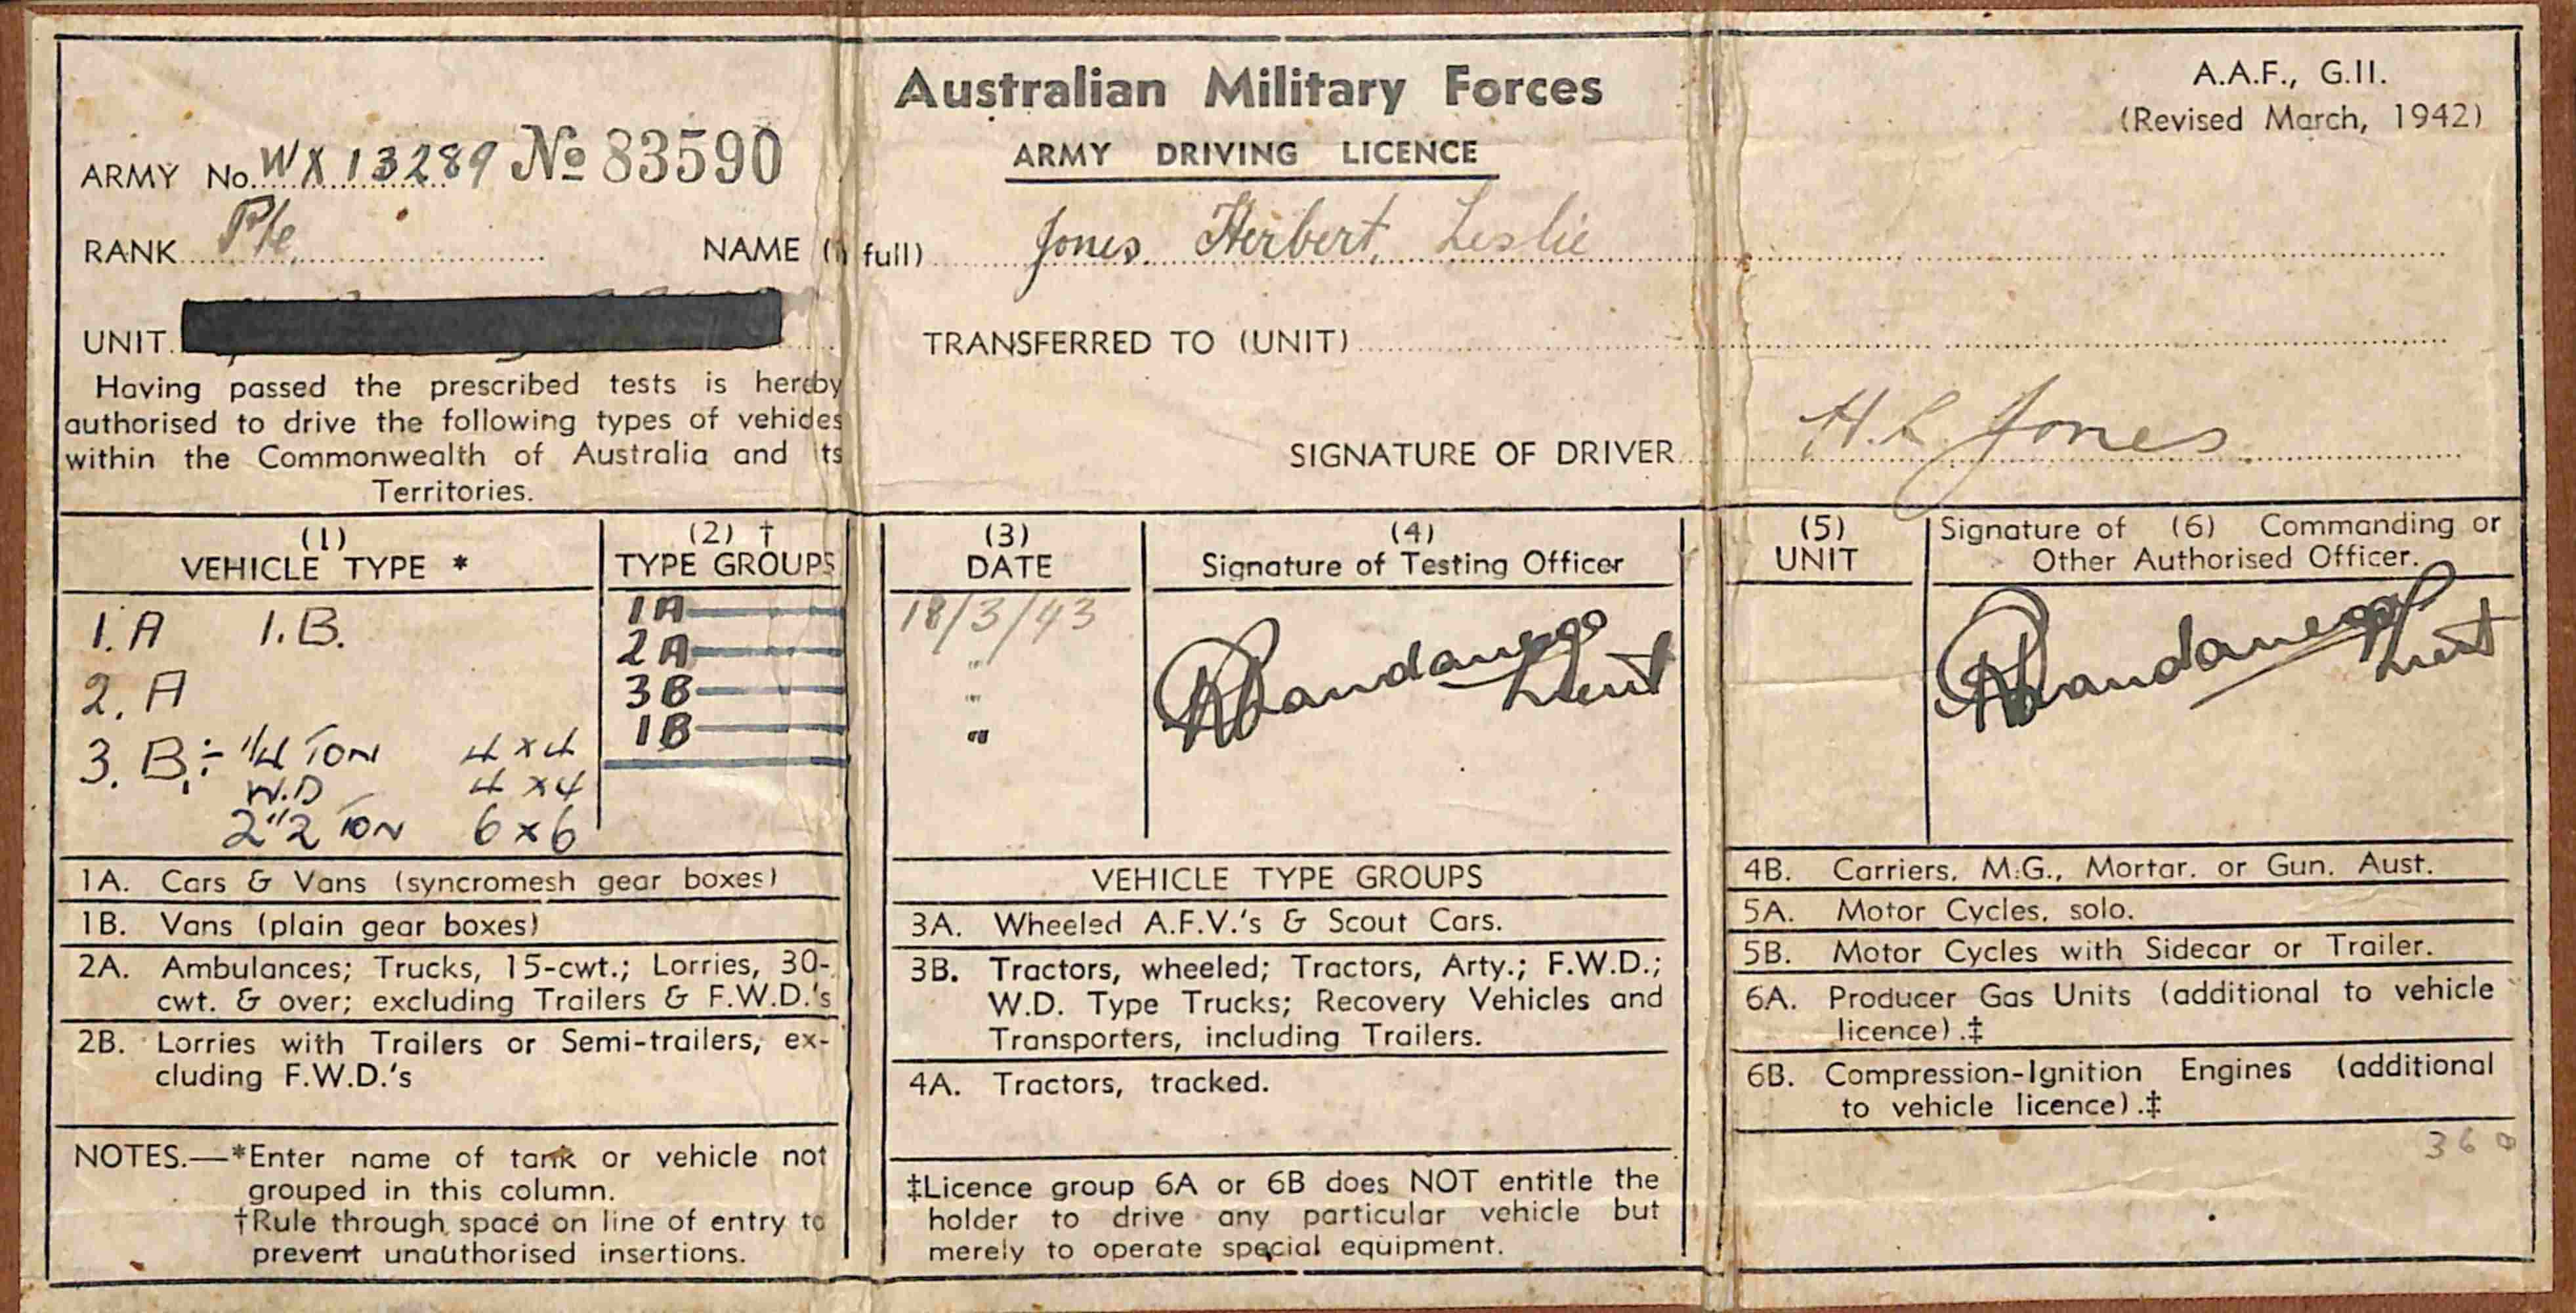 Australian Military Forces
A.A.F., G.11.
(Revised March, 1942)
ARMY DRIVING LICENCE
ARMY No. WX 13289 No 83590
RANK Pte NAME (in full) Jones Herbert, Leslie
UNIT
TRANSFERRED TO (UNIT)
Having passed the prescribed tests is hereby
authorised to drive the following types of vehicles
within the Commonwealth of Australia and its
Territories.
SIGNATURE OF DRIVER H.L. Jones
(1)
VEHICLE TYPE *
1.A 1.B.
2.A
3.B:- 1/4 TON 4x4
W.D 4x4
2 1/2 TON 6x6
(2) †
TYPE GROUPS
1A
2A
3B
1B
(3)
DATE
18/3/43
"
"
"
(4)
Signature of Testing Officer
Lieut
(5)
UNIT
Signature of (6) Commanding or
Other Authorised Officer.
Lieut
1A. Cars & Vans (syncromesh gear boxes)
1B. Vans (plain gear boxes)
2A. Ambulances; Trucks, 15-cwt.; Lorries, 30-
cwt. & over; excluding Trailers & F.W.D.'s
2B. Lorries with Trailers or Semi-trailers, ex-
cluding F.W.D.'s
NOTES.—*Enter name of tank or vehicle not
grouped in this column.
†Rule through space on line of entry to
prevent unauthorised insertions.
VEHICLE TYPE GROUPS
3A. Wheeled A.F.V.'s & Scout Cars.
3B. Tractors, wheeled; Tractors, Arty.; F.W.D.;
W.D. Type Trucks; Recovery Vehicles and
Transporters, including Trailers.
4A. Tractors, tracked.
‡Licence group 6A or 6B does NOT entitle the
holder to drive any particular vehicle but
merely to operate special equipment.
4B. Carriers, M.G., Mortar. or Gun. Aust.
5A. Motor Cycles, solo.
5B. Motor Cycles with Sidecar or Trailer.
6A. Producer Gas Units (additional to vehicle
licence).‡
6B. Compression-Ignition Engines (additional
to vehicle licence).‡